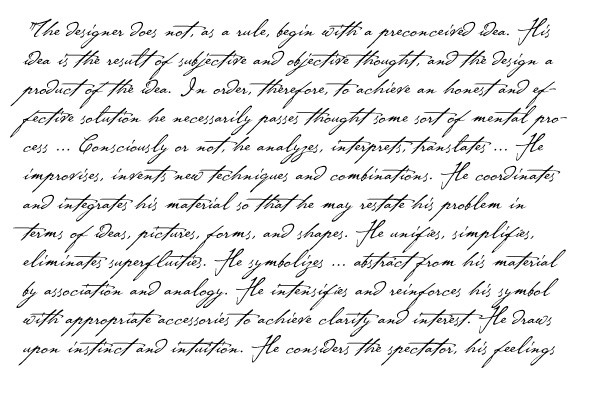 "The designer does not, as a rule, begin with a preconceived idea. His
idea is the result of subjective and objective thought, and the design a
product of the idea. In order, therefore, to achieve an honest and ef-
fective solution he necessarily passes thought some sort of mental pro-
cess ... Consciously or not, he analyzes, interprets, translates ... He
improvises, invents new techniques and combinations. He coordinates
and integrates his material so that he may restate his problem in
terms of ideas, pictures, forms, and shapes. He unifies, simplifies,
eliminates superfluities. He symbolizes ... abstract from his material
by association and analogy. He intensifies and reinforces his symbol
with appropriate accessories to achieve clarity and interest. He draws
upon instinct and intuition. He considers the spectator, his feelings